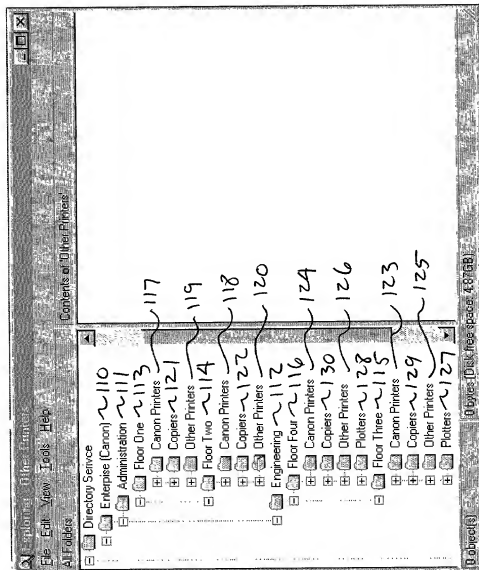 Exploring - Other Printers
File Edit View Tools Help
All Folders Contents of 'Other Printers'
Directory Serivce
Enterpise (Canon) ~110
Administration ~111
Floor One ~113
Canon Printers 117
Copiers ~121
Other Printers 119
Floor Two ~114
Canon Printers 118
Copiers ~122
Other Printers 120
Engineering ~112
Floor Four ~116
Canon Printers 124
Copiers ~130
Other Printers 126
Plotters ~128
Floor Three ~115
Canon Printers 123
Copiers ~129
Other Printers 125
Plotters ~127
0 object(s) 0 bytes (Disk free space: 4.87GB)